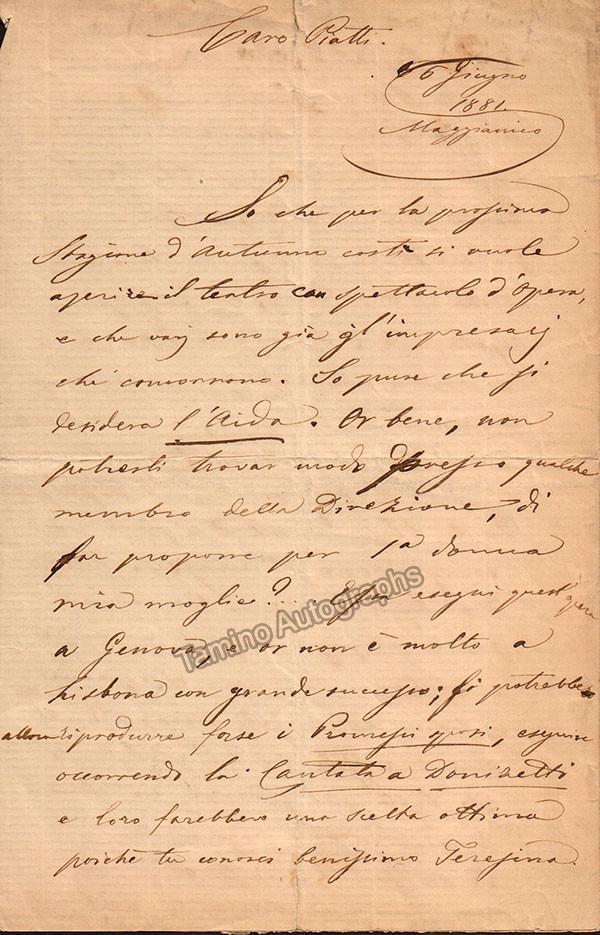 Caro Piatti.
6 Giugno
1881.
Maggianico
So che per la prossima
Stagione d'Autunno costì si vuole
aprire il teatro con spettacolo d'Opera,
e che varj sono già gl'impresarj
che concorrono. So pure che si
desidera l'Aida. Or bene, non
potresti trovar modo presso qualche
membro della Direzione, di
far proporre per 1a donna
mia moglie?... Essa eseguì quest'opera
a Genova, e or non è molto a
Lisbona con grande successo; si potrebbe
allora riprodurre forse i Promessi sposi, eseguire
occorrendo la Cantata a Donizetti
e loro farebbero una scelta ottima
poichè tu conosci benissimo Teresina.
Tamino Autographs